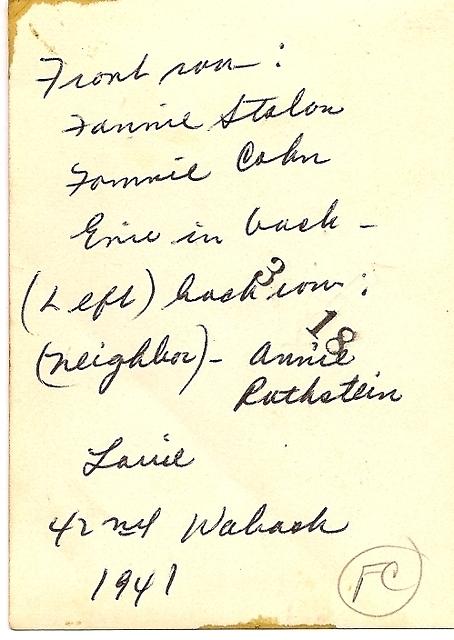 Front row:
Fannie Stolou
Fannie Cohn
Ernie in back -
(Left) back row:
3
18
(neighbor) - Annie
Rothstein
Louie
42nd Wabash
1941
FC